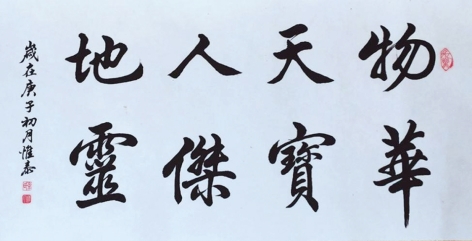 物華
天寶
人傑
地靈
歲在庚子初月惟泰